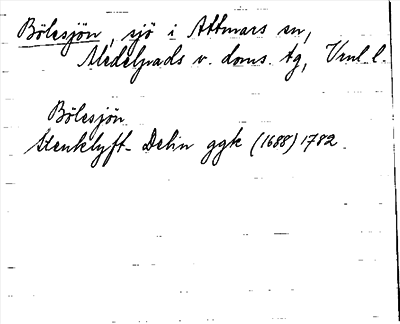 Bölesjön, sjö i Attmars sn,
Medelpads v. doms. tg, Vnl l.
Bölesjön
Stenklyft- Delin ggk (1688) 1782